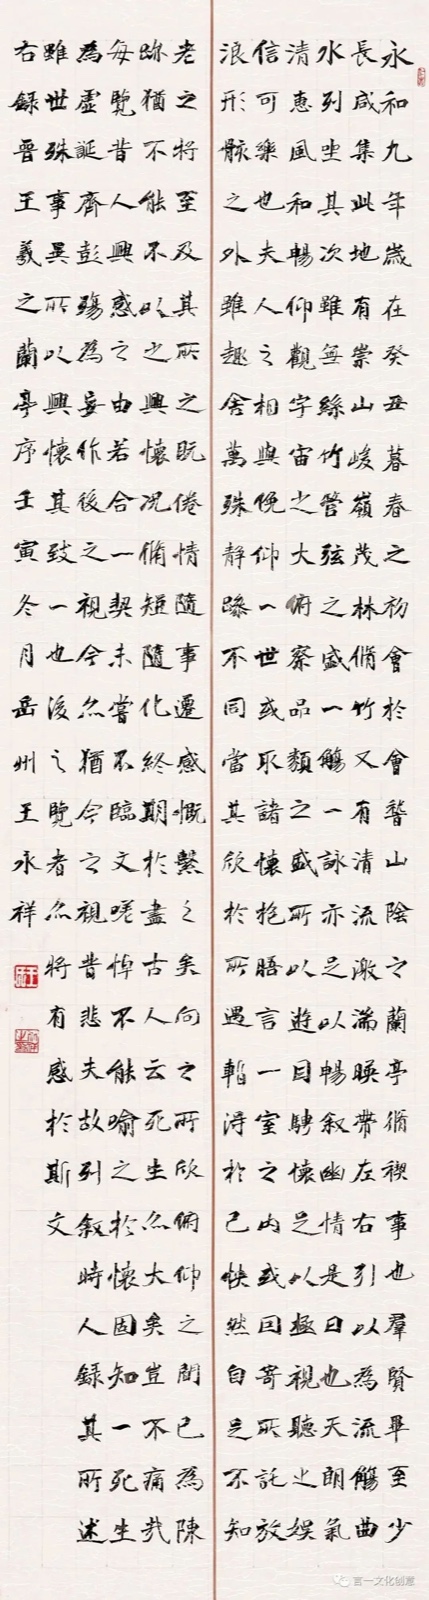 永和九年歲在癸丑暮春之初會於會稽山陰之蘭亭脩禊事也羣賢畢至少
長咸集此地有崇山峻嶺茂林脩竹又有清流激湍暎帶左右引以為流觴曲
水列坐其次雖無絲竹管弦之盛一觴一詠亦足以暢敘幽情是日也天朗氣
清惠風和暢仰觀宇宙之大俯察品類之盛所以遊目騁懷足以極視聽之娛
信可樂也夫人之相與俛仰一世或取諸懷抱晤言一室之內或因寄所託放
浪形骸之外雖趣舍萬殊靜躁不同當其欣於所遇暫得於己快然自足不知
老之將至及其所之既倦情隨事遷感慨繫之矣向之所欣俯仰之間已為陳
跡猶不能不以之興懷況脩短隨化終期於盡古人云死生亦大矣豈不痛哉
每覽昔人興感之由若合一契未嘗不臨文嗟悼不能喻之於懷固知一死生
為虛誕齊彭殤為妄作後之視今亦猶今之視昔悲夫故列敘時人錄其所述
雖世殊事異所以興懷其致一也後之覽者亦將有感於斯文
右錄晉王羲之蘭亭序壬寅冬月岳州王永祥
言一文化創意